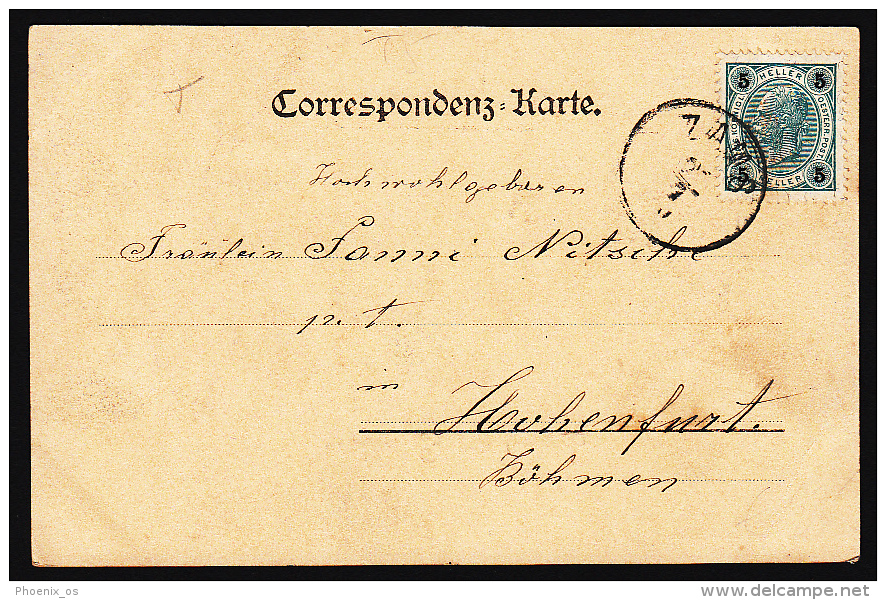 Correspondenz-Karte.
5 HELLER 5
OESTERR. POST.
5 HELLER 5
Hochwohlgeboren
Fräulein Fanni Nitsche
p. t.
in
Hohenfurt.
Böhmen
Phoenix_os
delcampe.net